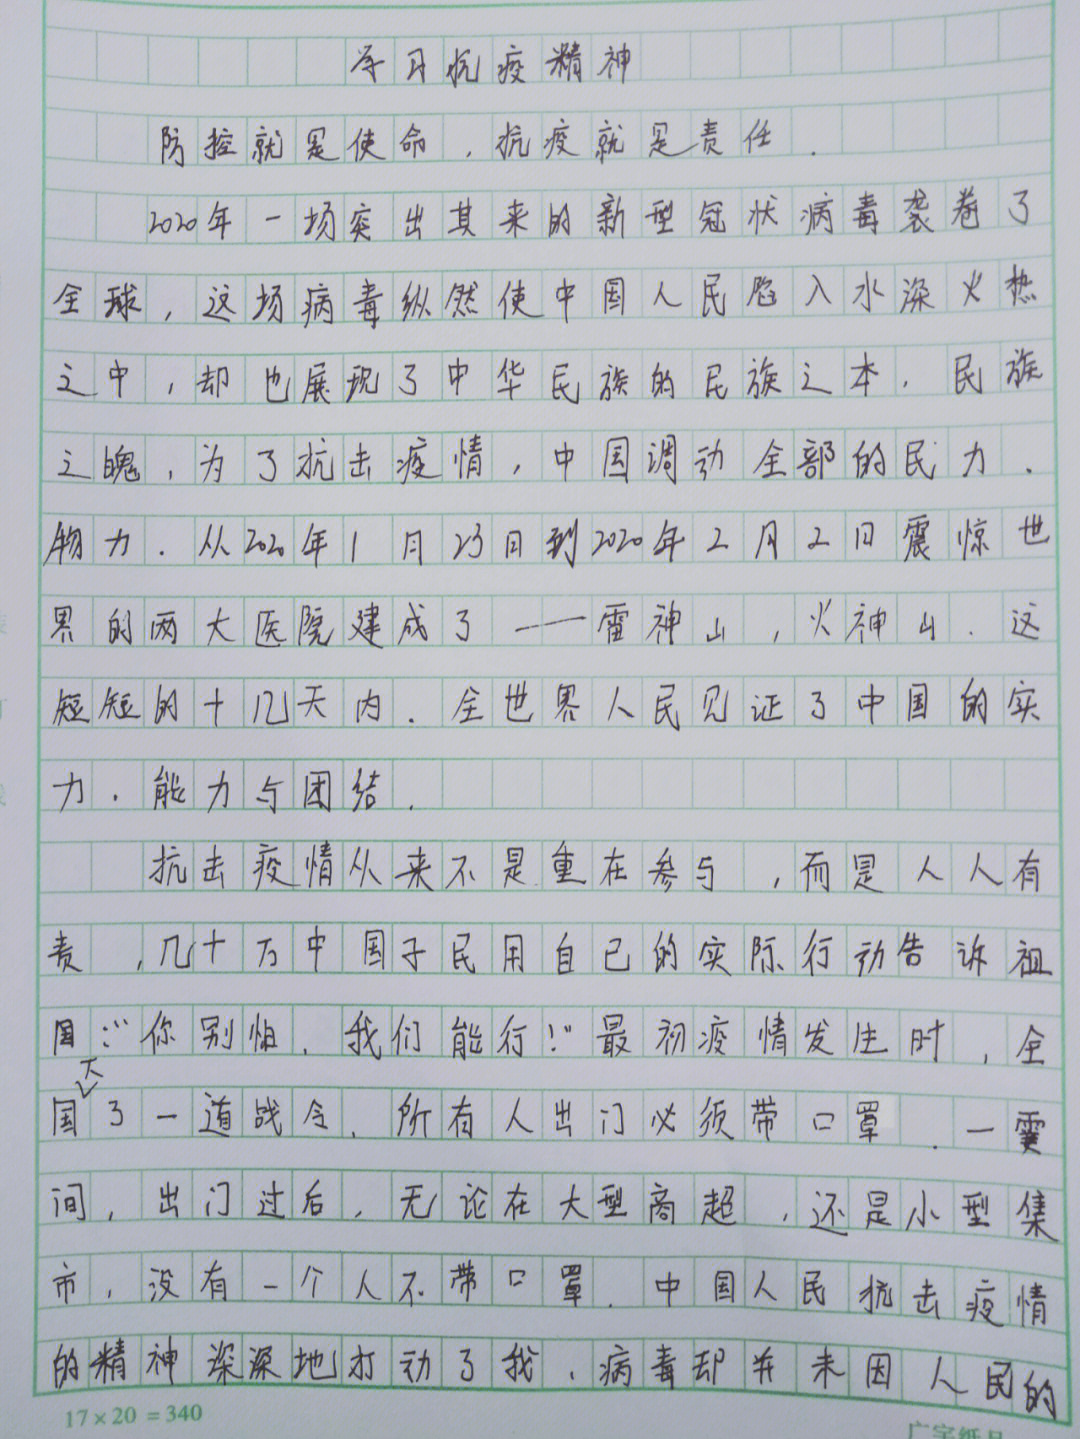 学习抗疫精神
防控就是使命，抗疫就是责任.
2020年一场突出其来的新型冠状病毒袭卷了
全球，这场病毒纵然使中国人民陷入水深火热
之中，却也展现了中华民族的民族之本.民族
之魄，为了抗击疫情，中国调动全部的民力.
物力.从2020年1月23日到2020年2月2日震惊世
界的两大医院建成了——雷神山，火神山.这
短短的十几天内.全世界人民见证了中国的实
力.能力与团结.
抗击疫情从来不是重在参与，而是人人有
责，几十万中国子民用自己的实际行动告诉祖
国：“你别怕、我们能行!”最初疫情发生时，全
国下了一道战令、所有人出门必须带口罩.一霎
间，出门过后，无论在大型商超，还是小型集
市，没有一个人不带口罩.中国人民抗击疫情
的精神深深地打动了我、病毒却并未因人民的
17×20=340
广宇纸品